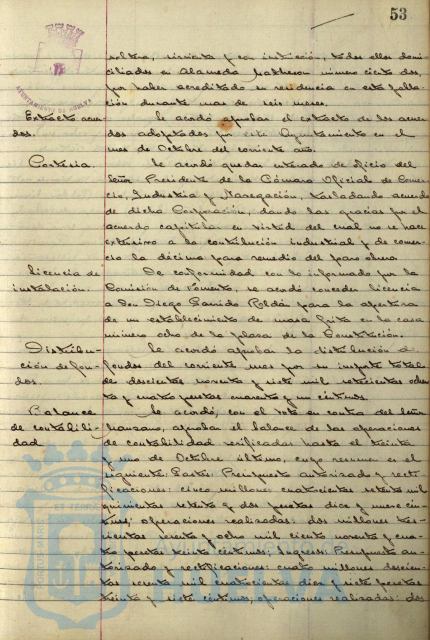 53
soltera, sirvienta y con instrucción, todos ellos domi-
ciliados en Alameda Sundheim número ciento dos,
por haber acreditado su residencia en esta pobla-
ción durante mas de seis meses.
Extracto acuer-
dos.
Se acordó aprobar el extracto de los acuer-
dos adoptados por este Ayuntamiento en el
mes de Octubre del corriente año.
Cortesía.
Se acordó quedar enterado de oficio del
Señor Presidente de la Cámara Oficial de Comer-
cio, Industria y Navegación, trasladando acuerdo
de dicha Corporación, dando las gracias por el
acuerdo capitular en virtud del cual no se hace
extensivo a la contribución industrial y de comer-
cio la décima para remedio del paro obrero.
Licencia de
instalación.
De conformidad con lo informado por la
Comisión de Fomento, se acordó conceder licencia
a Don Diego Garrido Roldán para la apertura
de un establecimiento de masa frita en la casa
número ocho de la plaza de la Constitución.
Distribu-
ción de fon-
dos.
Se acordó aprobar la distribución de
fondos del corriente mes por su importe total
de doscientas noventa y siete mil setecientas ochen
ta y cuatro pesetas cuarenta y un céntimos.
Balance
de contabili-
dad.
Se acordó, con el voto en contra del Señor
Manzano, aprobar el balance de las operaciones
de contabilidad verificadas hasta el treinta
y uno de Octubre último, cuyo resumen es el
siguiente: Gastos: Presupuesto autorizado y recti-
ficaciones: cinco millones cuatrocientas setenta mil
quinientas setenta y dos pesetas diez y nueve cén-
timos; operaciones realizadas: dos millones tres-
cientas y ocho mil ciento noventa y cua-
tro pesetas treinta céntimos; Ingresos: Presupuesto au-
torizado y rectificaciones: cuatro millones doscien-
tas mil cuatrocientas diez y siete pesetas
treinta y siete céntimos; operaciones realizadas: dos